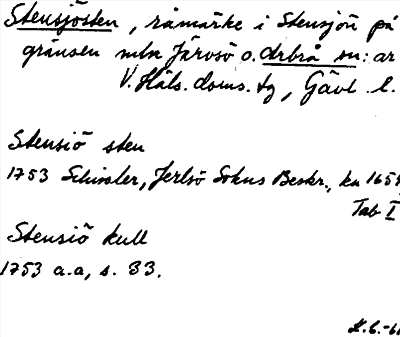 Stensjösten, råmärke i Stensjön på
gränsen mln Järvsö o. Arbrå sn:ar
V. Häls. doms. tg, Gävl. l.
Stensiö sten
1753 Schissler, Jerlsö Sokns Beskr., kn 165
Tab I
Stensiö kull
1753 a.a, s. 33.